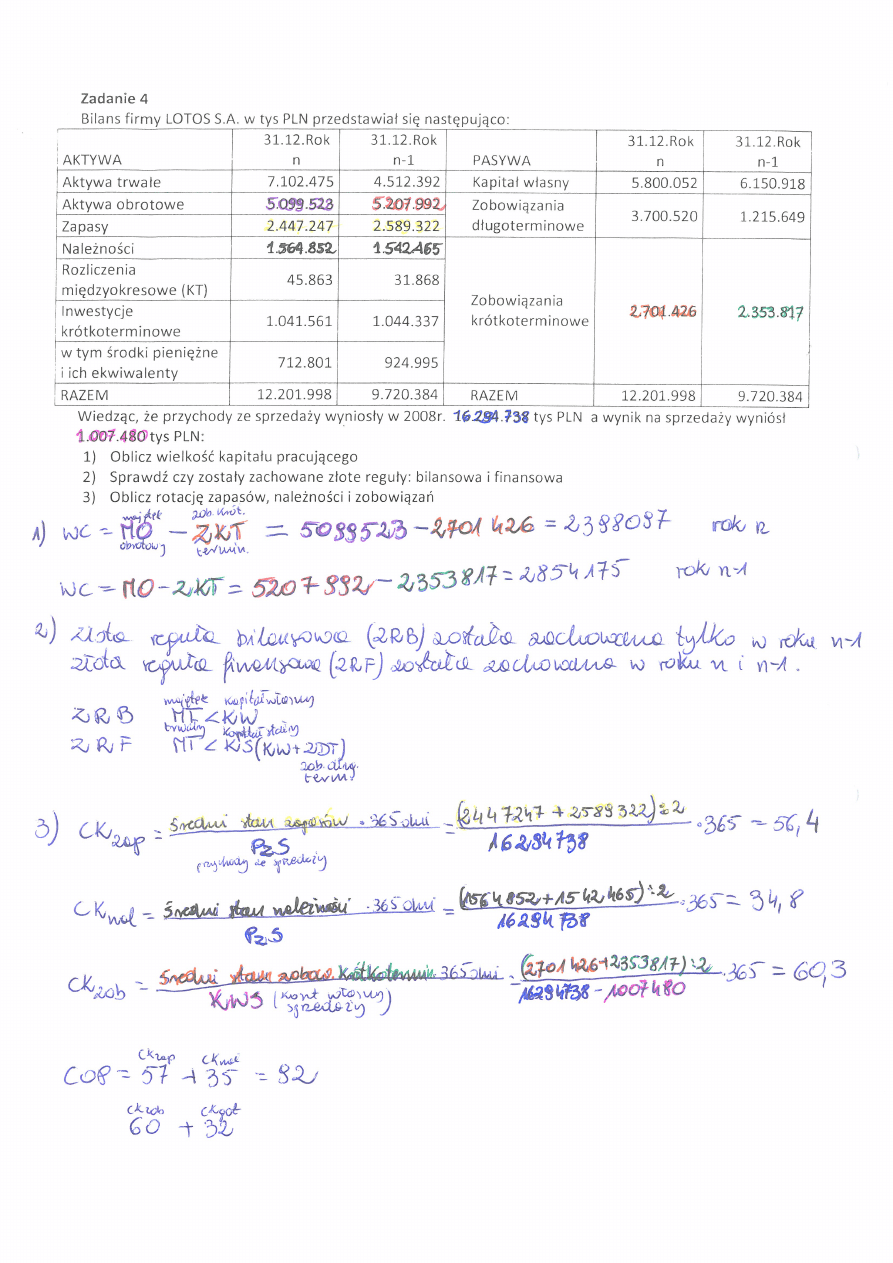 Zadanie 4
Bilans firmy LOTOS S.A. w tys PLN przedstawiał się następująco:
AKTYWA 31.12.Rok n 31.12.Rok n-1 PASYWA 31.12.Rok n 31.12.Rok n-1
Aktywa trwałe 7.102.475 4.512.392 Kapitał własny 5.800.052 6.150.918
Aktywa obrotowe 5.099.523 5.207.992 Zobowiązania długoterminowe 3.700.520 1.215.649
Zapasy 2.447.247 2.589.322
Należności 1.564.852 1.542.465 Zobowiązania krótkoterminowe 2.701.426 2.353.817
Rozliczenia międzyokresowe (KT) 45.863 31.868
Inwestycje krótkoterminowe 1.041.561 1.044.337
w tym środki pieniężne i ich ekwiwalenty 712.801 924.995
RAZEM 12.201.998 9.720.384 RAZEM 12.201.998 9.720.384
Wiedząc, że przychody ze sprzedaży wyniosły w 2008r. 16.294.738 tys PLN a wynik na sprzedaży wyniósł
1.007.480 tys PLN:
1) Oblicz wielkość kapitału pracującego
2) Sprawdź czy zostały zachowane złote reguły: bilansowa i finansowa
3) Oblicz rotację zapasów, należności i zobowiązań
majątek zob. krót.
1) WC = MO - ZKT = 5099523 - 2701426 = 2398097 rok n
obrotowy termin.
WC = MO - ZKT = 5207992 - 2353817 = 2854175 rok n-1
2) Złota reguła bilansowa (ZRB) została zachowana tylko w roku n-1
złota reguła finansowa (ZRF) została zachowana w roku n i n-1.
majątek kapitał własny
ZRB MT < KW
trwały kapitał stały
ZRF MT < KS (KW + ZDT)
zob. dług.
term.
3) CKzap = Średni stan zapasów · 365 dni = (2447247 + 2589322) : 2 · 365 = 56,4
PzS 16294738
przychody ze sprzedaży
CKnal = Średni stan należności · 365 dni = (1564852 + 1542465) : 2 · 365 = 34,8
PzS 16294738
CKzob = Średni stan zobow. krótkotermin. 365 dni = (2701426 + 2353817) : 2 · 365 = 60,3
KWS (koszt własny sprzedaży) 16294738 - 1007480
CKzap CKnal
COP = 57 + 35 = 92
CKzob CKgot
60 + 32